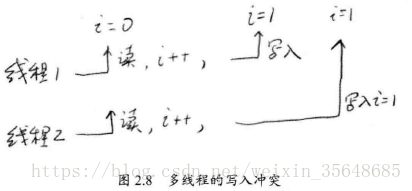 i=0 i=1 i=1
线程1 读, i++, 写入
线程2 读, i++, 写入i=1
https://blog.csdn.net/weixin_35648685
图 2.8 多线程的写入冲突